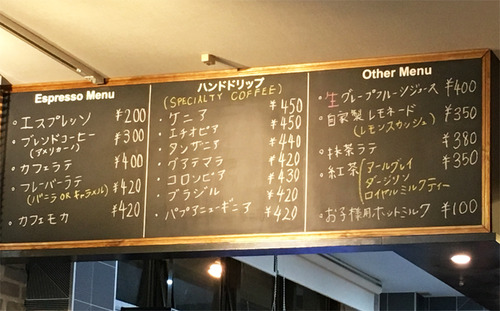 Espresso Menu
・エスプレッソ ¥200
・ブレンドコーヒー ¥300
(アメリカーノ)
・カフェラテ ¥400
・フレーバーラテ ¥420
(バニラ OR キャラメル)
・カフェモカ ¥420
ハンドドリップ
(SPECIALTY COFFEE)
・ケニア ¥450
・エチオピア ¥450
・タンザニア ¥440
・グアテマラ ¥420
・コロンビア ¥430
・ブラジル ¥420
・パプアニューギニア ¥420
Other Menu
・生グレープフルーツジュース ¥400
・自家製レモネード ¥350
(レモンスカッシュ)
・抹茶ラテ ¥380
・紅茶 アールグレイ ¥350
ダージリン
ロイヤルミルクティー
・お子様用ホットミルク ¥100